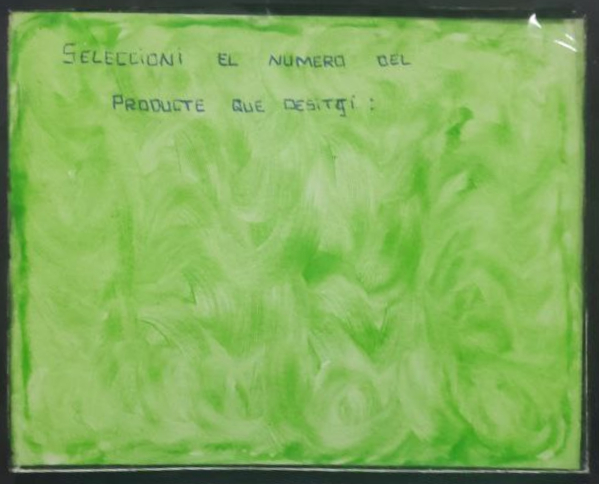 SELECCIONI EL NUMERO DEL
PRODUCTE QUE DESITGI :